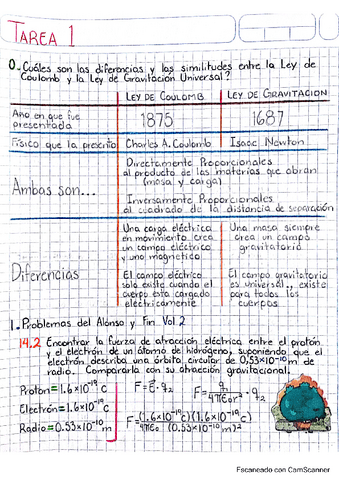 TAREA 1
0. Cuáles son las diferencias y las similitudes entre la Ley de
Coulomb y la Ley de Gravitación Universal?
LEY DE COULOMB
LEY DE GRAVITACIÓN
Año en que fue
presentada
1875
1687
Físico que la presentó
Charles A. Coulomb
Isaac Newton
Ambas son...
Directamente Proporcionales
al producto de las materias que obran
(masa y carga)
Inversamente Proporcionales
al cuadrado de la distancia de separación
Diferencias
Una carga eléctrica
en movimiento crea
un campo eléctrico
y uno magnético
El campo eléctrico
solo existe cuando el
cuerpo esta cargado
electricamente
Una masa siempre
crea un campo
gravitatorio
El campo gravitatorio
es universal, existe
para todos los
cuerpos
1. Problemas del Alonso y Fin Vol 2
14.2 Encontrar la fuerza de atracción eléctrica entre el protón
y el electrón de un átomo de hidrógeno, suponiendo que el
electrón describa una órbita circular de 0,53x10⁻¹⁰ m de
radio. Compararla con su atracción gravitacional.
Protón=1.6x10⁻¹⁹c
Electrón=1.6x10⁻¹⁹c
Radio=0.53x10⁻¹⁰m
F=E·q₂
F=q/4πε₀r²·q₂
F=(1.6x10⁻¹⁹c)(1.6x10⁻¹⁹c)/4πε₀(0.53x10⁻¹⁰m)²
Escaneado con CamScanner